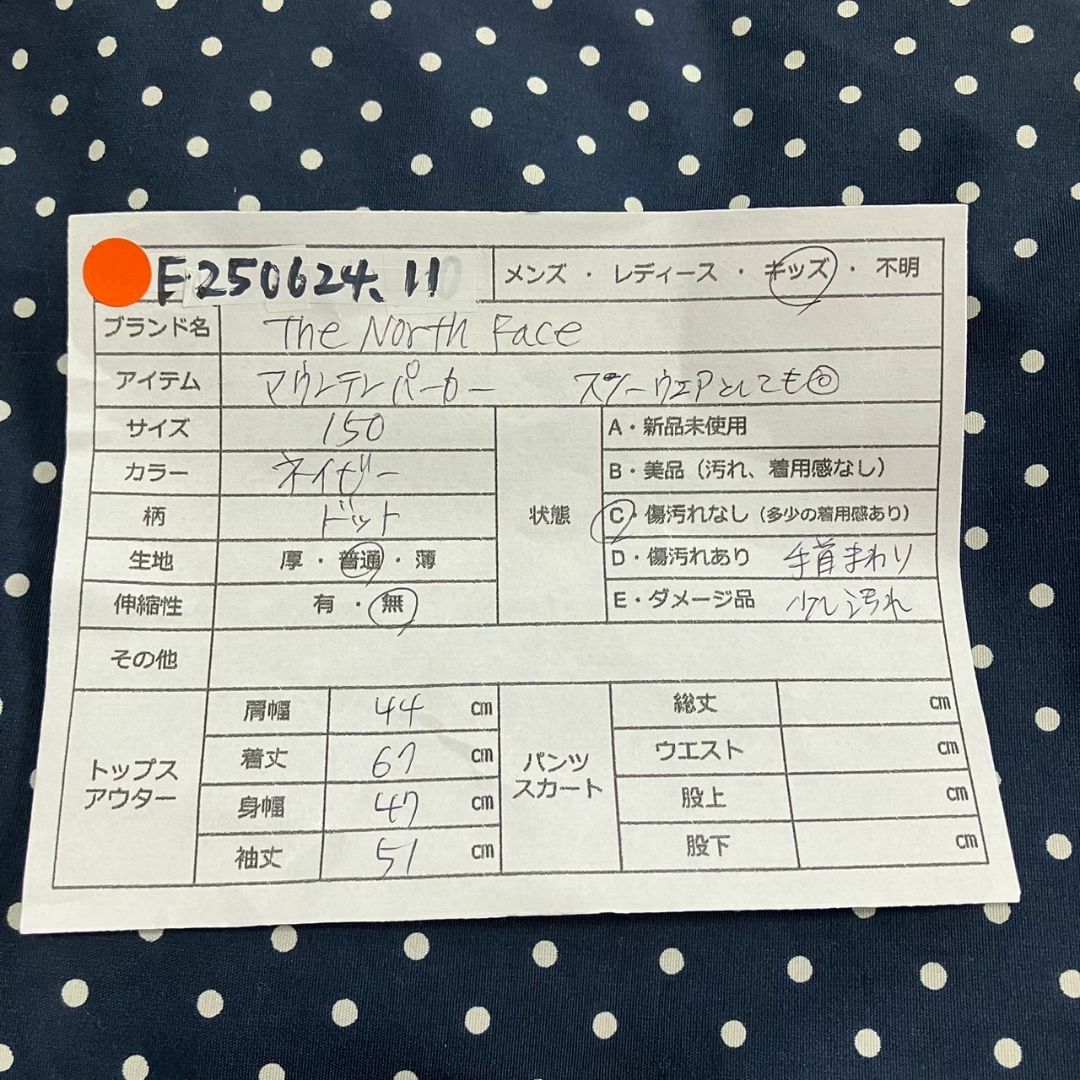 E250624.11 メンズ ・ レディース ・ キッズ ・ 不明
ブランド名 The North Face
アイテム マウンテンパーカー スノーウェアとしても◎
サイズ 150
カラー ネイビー
柄 ドット
生地 厚 ・ 普通 ・ 薄
伸縮性 有 ・ 無
状態
A・新品未使用
B・美品（汚れ、着用感なし）
C・傷汚れなし（多少の着用感あり）
D・傷汚れあり 手首まわり
E・ダメージ品 少し汚れ
その他
トップス
アウター
肩幅 44 cm
着丈 67 cm
身幅 47 cm
袖丈 51 cm
パンツ
スカート
総丈 cm
ウエスト cm
股上 cm
股下 cm